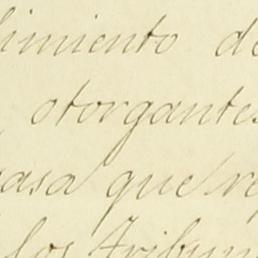 limiento de
otorgantes
casa que re
los Tribun